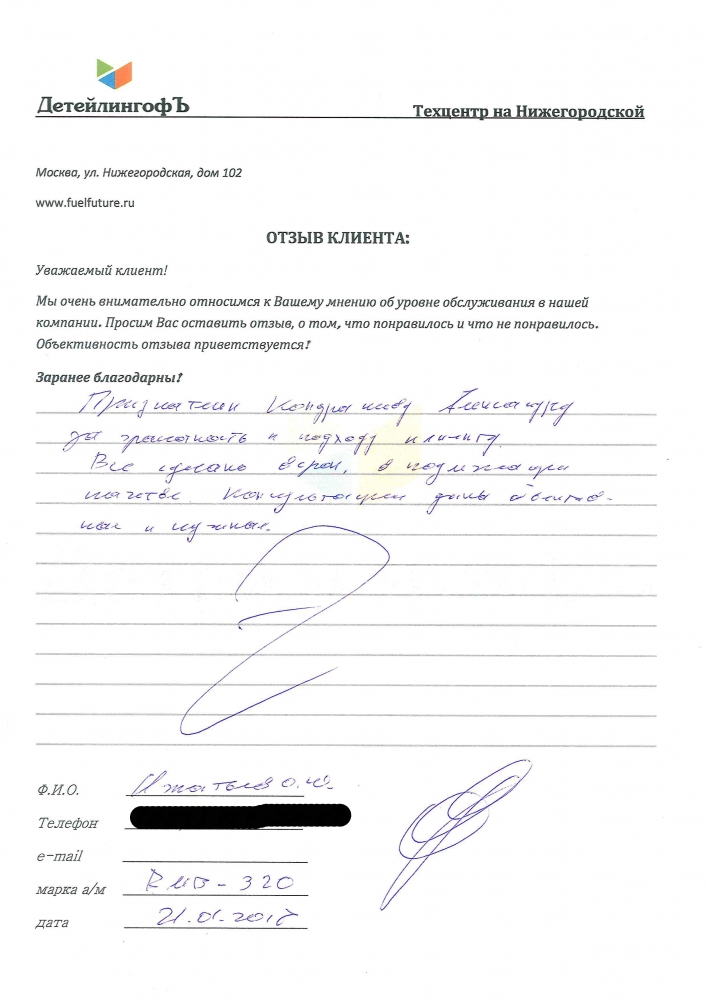 ДетейлингофЪ
Техцентр на Нижегородской
Москва, ул. Нижегородская, дом 102
www.fuelfuture.ru
ОТЗЫВ КЛИЕНТА:
Уважаемый клиент!
Мы очень внимательно относимся к Вашему мнению об уровне обслуживания в нашей
компании. Просим Вас оставить отзыв, о том, что понравилось и что не понравилось.
Объективность отзыва приветствуется!
Заранее благодарны!
Признателен Кондрашову Александру
за грамотность и подходу клиенту.
Все сделано в срок, в надлежащем
качестве. Консультации даны
и нужные.
Ф.И.О.
Телефон
e-mail
марка а/м
дата 21.01.2017